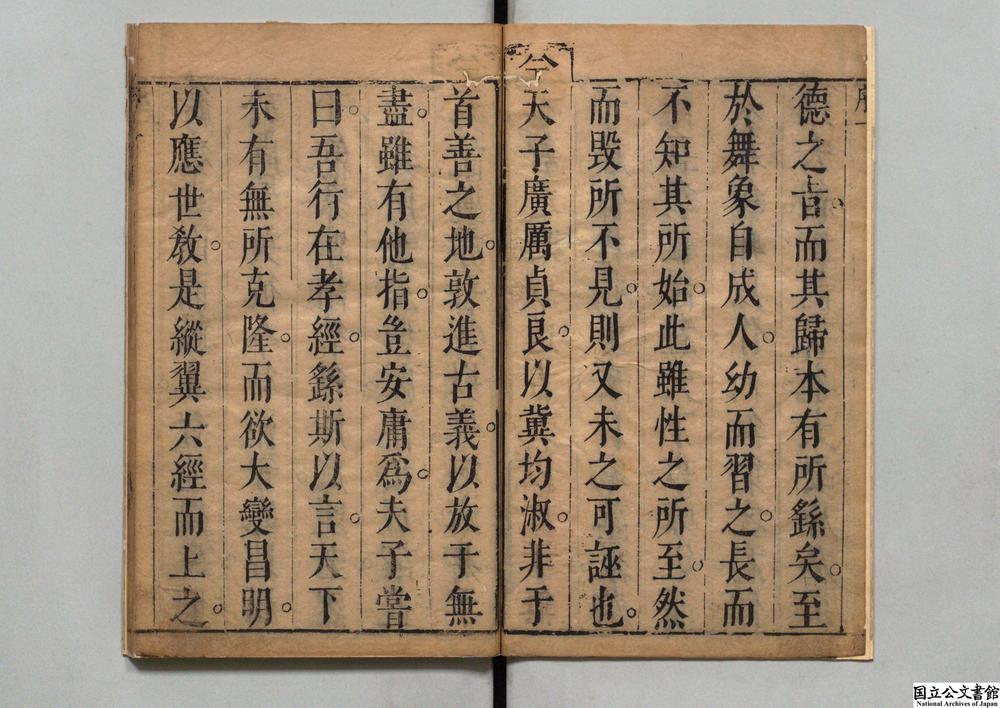 德之言而其歸本有所繇矣。至
於舞象自成人。幼而習之。長而
不知其所始。此雖性之所至。然
而毀所不見。則又未之可誣也。
今
天子廣厲貞良。以冀均淑。非于
首善之地。敦進古義。以放于無
盡。雖有他指。豈安庸爲。夫子嘗
曰。吾行在孝經。繇斯以言。天下
未有無所克隆。而欲大變昌明。
以應世敎。是縱翼六經而上之。
国立公文書館
National Archives of Japan